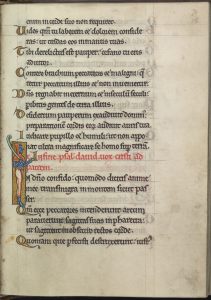 enim in corde suo non requiret.
Uides qm tu laborem et dolorem conside
ras: ut tradas eos in manus tuas.
Tibi derelictus est pauper: orfano tu eris
adiutor.
Contere brachium peccatoris et maligni: que
retur peccatum illius et non inuenietur.
Dns regnabit in eternum et in seculum seculi:
peribitis gentes de terra illius.
Desiderium pauperum exaudiuit domin:
preparationem cordis eor audiuit auris tua.
Iudicare pupillo et humili: ut non appo
nat ultra magnificare se homo sup terram.
In fine psal. dauid. uox ad
patrem.
In dno confido: quomodo dicitis anime
mee transmigra in montem sicut pas
ser.
Qm ecce peccatores intenderunt arcum
parauerunt sagittas suas in pharetra
ut sagittent in obscuro rectos corde.
Quoniam que pfecisti destruxerunt: